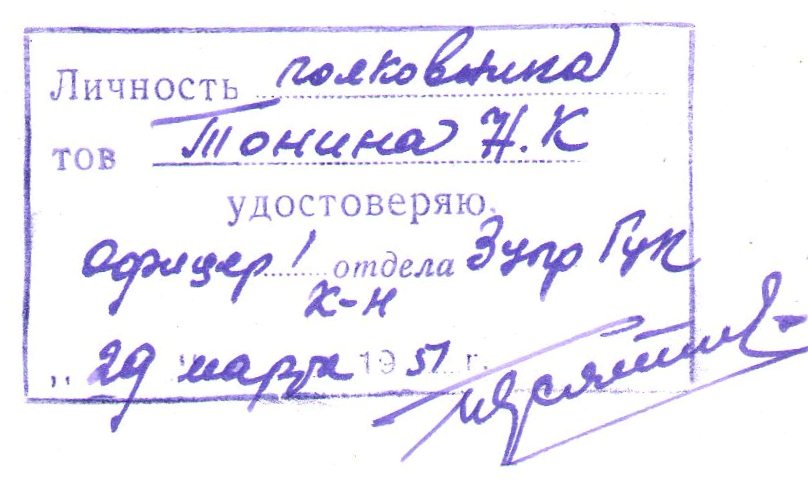 Личность полковника
тов Тонина Н.К
удостоверяю.
офицер 1 отдела 3 упр Гук
к-н
„ 29 " марта 1951 г.